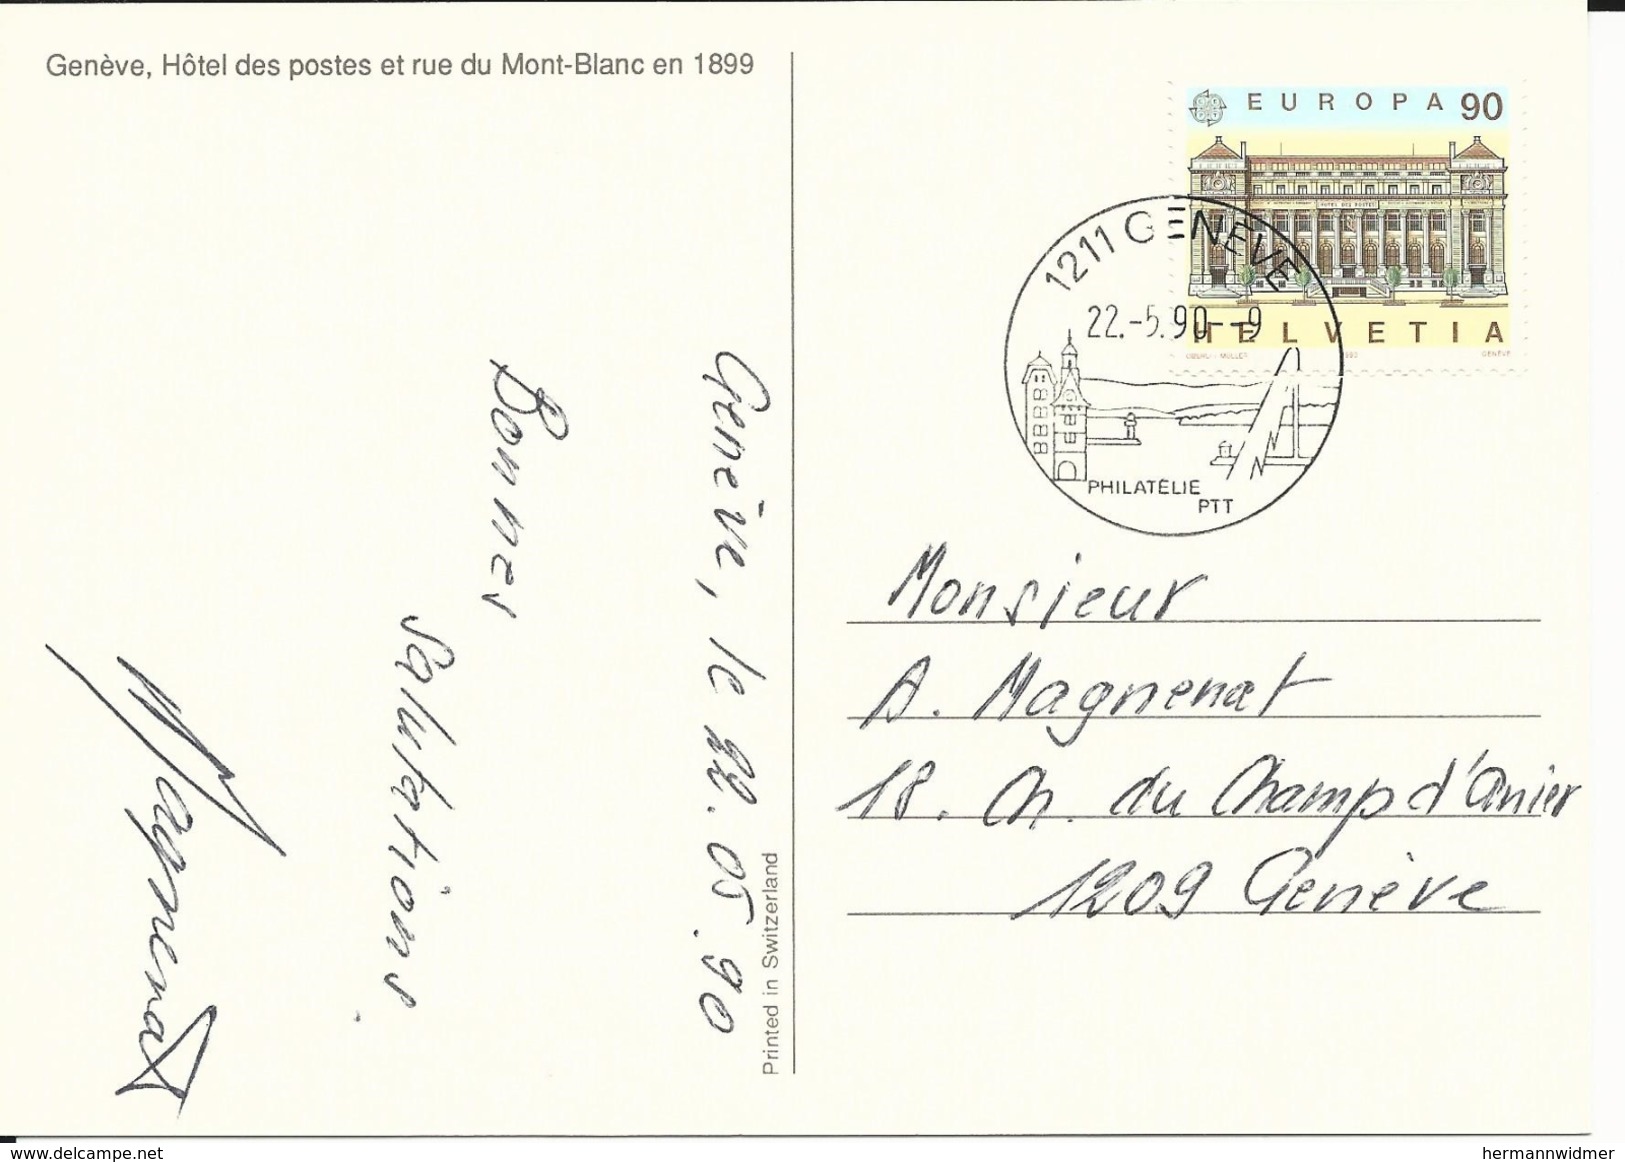 Genève, Hôtel des postes et rue du Mont-Blanc en 1899
EUROPA 90
HÔTEL DES POSTES
HELVETIA
GENÈVE
1211 GENÈVE
22.-5.90--9
PHILATÉLIE
PTT
Genève, le 22.05.90
Bonnes
salutations.
Magnenat
Printed in Switzerland
Monsieur
A. Magnenat
18. Ch. du Champ d'Anier
1209 Genève
delcampe.net
hermannwidmer